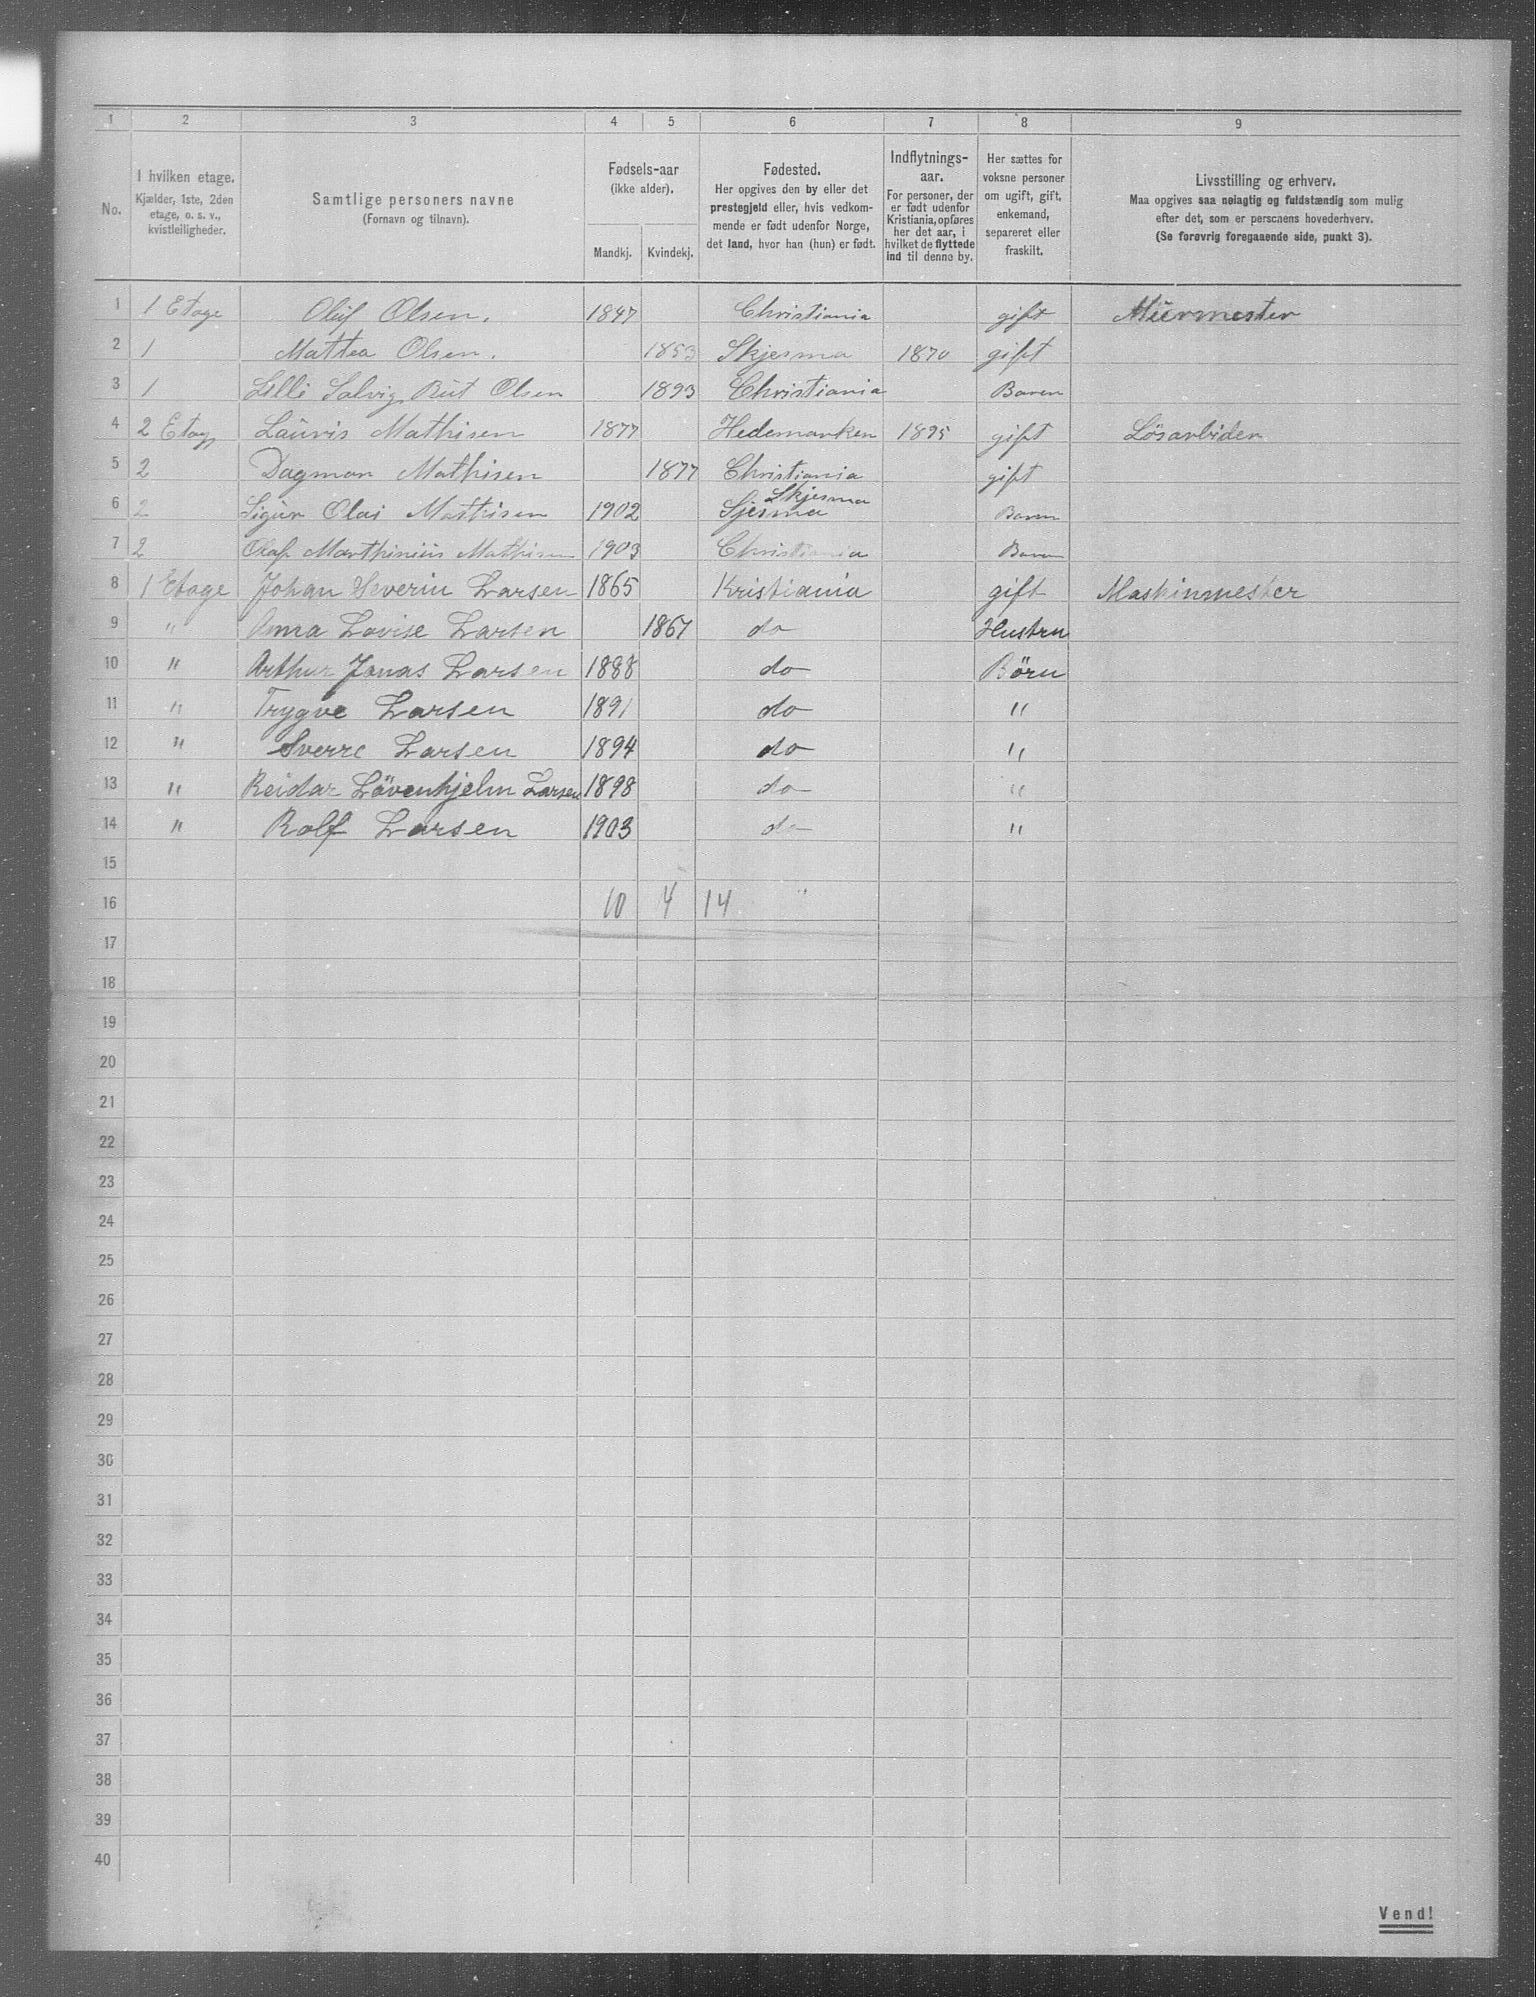 1 2 3 4 5 6 7 8 9
No. I hvilken etage. Kjælder, 1ste, 2den etage, o. s. v., kvistleiligheder. Samtlige personers navne (Fornavn og tilnavn). Fødsels-aar (ikke alder). Mandkj. Kvindekj. Fødested. Her opgives den by eller det prestegjeld eller, hvis vedkommende er født udenfor Norge, det land, hvor han (hun) er født. Indflytnings-aar. For personer, der er født udenfor Kristiania, opføres her det aar, i hvilket de flyttede ind til denne by. Her sættes for voksne personer om ugift, gift, enkemand, separeret eller fraskilt. Livsstilling og erhverv. Maa opgives saa nøiagtig og fuldstændig som mulig efter det, som er personens hovederhverv. (Se forøvrig foregaaende side, punkt 3).
1 1 Etage Oluf Olsen. 1847 Christiania gift Muermester
2 1 Mattea Olsen. 1853 Skjesma 1870 gift
3 1 Lilli Solvig Rut Olsen 1893 Christiania Baren
4 2 Etag Lauris Mathisen 1877 Hedemarken 1895 gift Lösarbider
5 2 Dagmar Mathisen 1877 Christiania gift
6 2 Sigur Olai Mathisen 1902 Sjesma Skjesma Baren
7 2 Olaf Marthinius Mathisen 1903 Christiania Baren
8 1 Etage Johan Severin Larsen 1865 Kristiania gift Maskinmester
9 " Anna Lovise Larsen 1867 do Hustru
10 " Arthur Jonas Larsen 1888 do Börn
11 " Trygve Larsen 1891 do "
12 " Sverre Larsen 1894 do "
13 " Reidar Lövenhjelm Larsen 1898 do "
14 " Rolf Larsen 1903 do "
15
16 10 4 14 "
17
18
19
20
21
22
23
24
25
26
27
28
29
30
31
32
33
34
35
36
37
38
39
40
Vend!